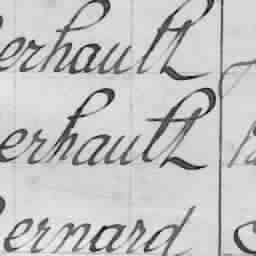 erhault
erhault
ernard